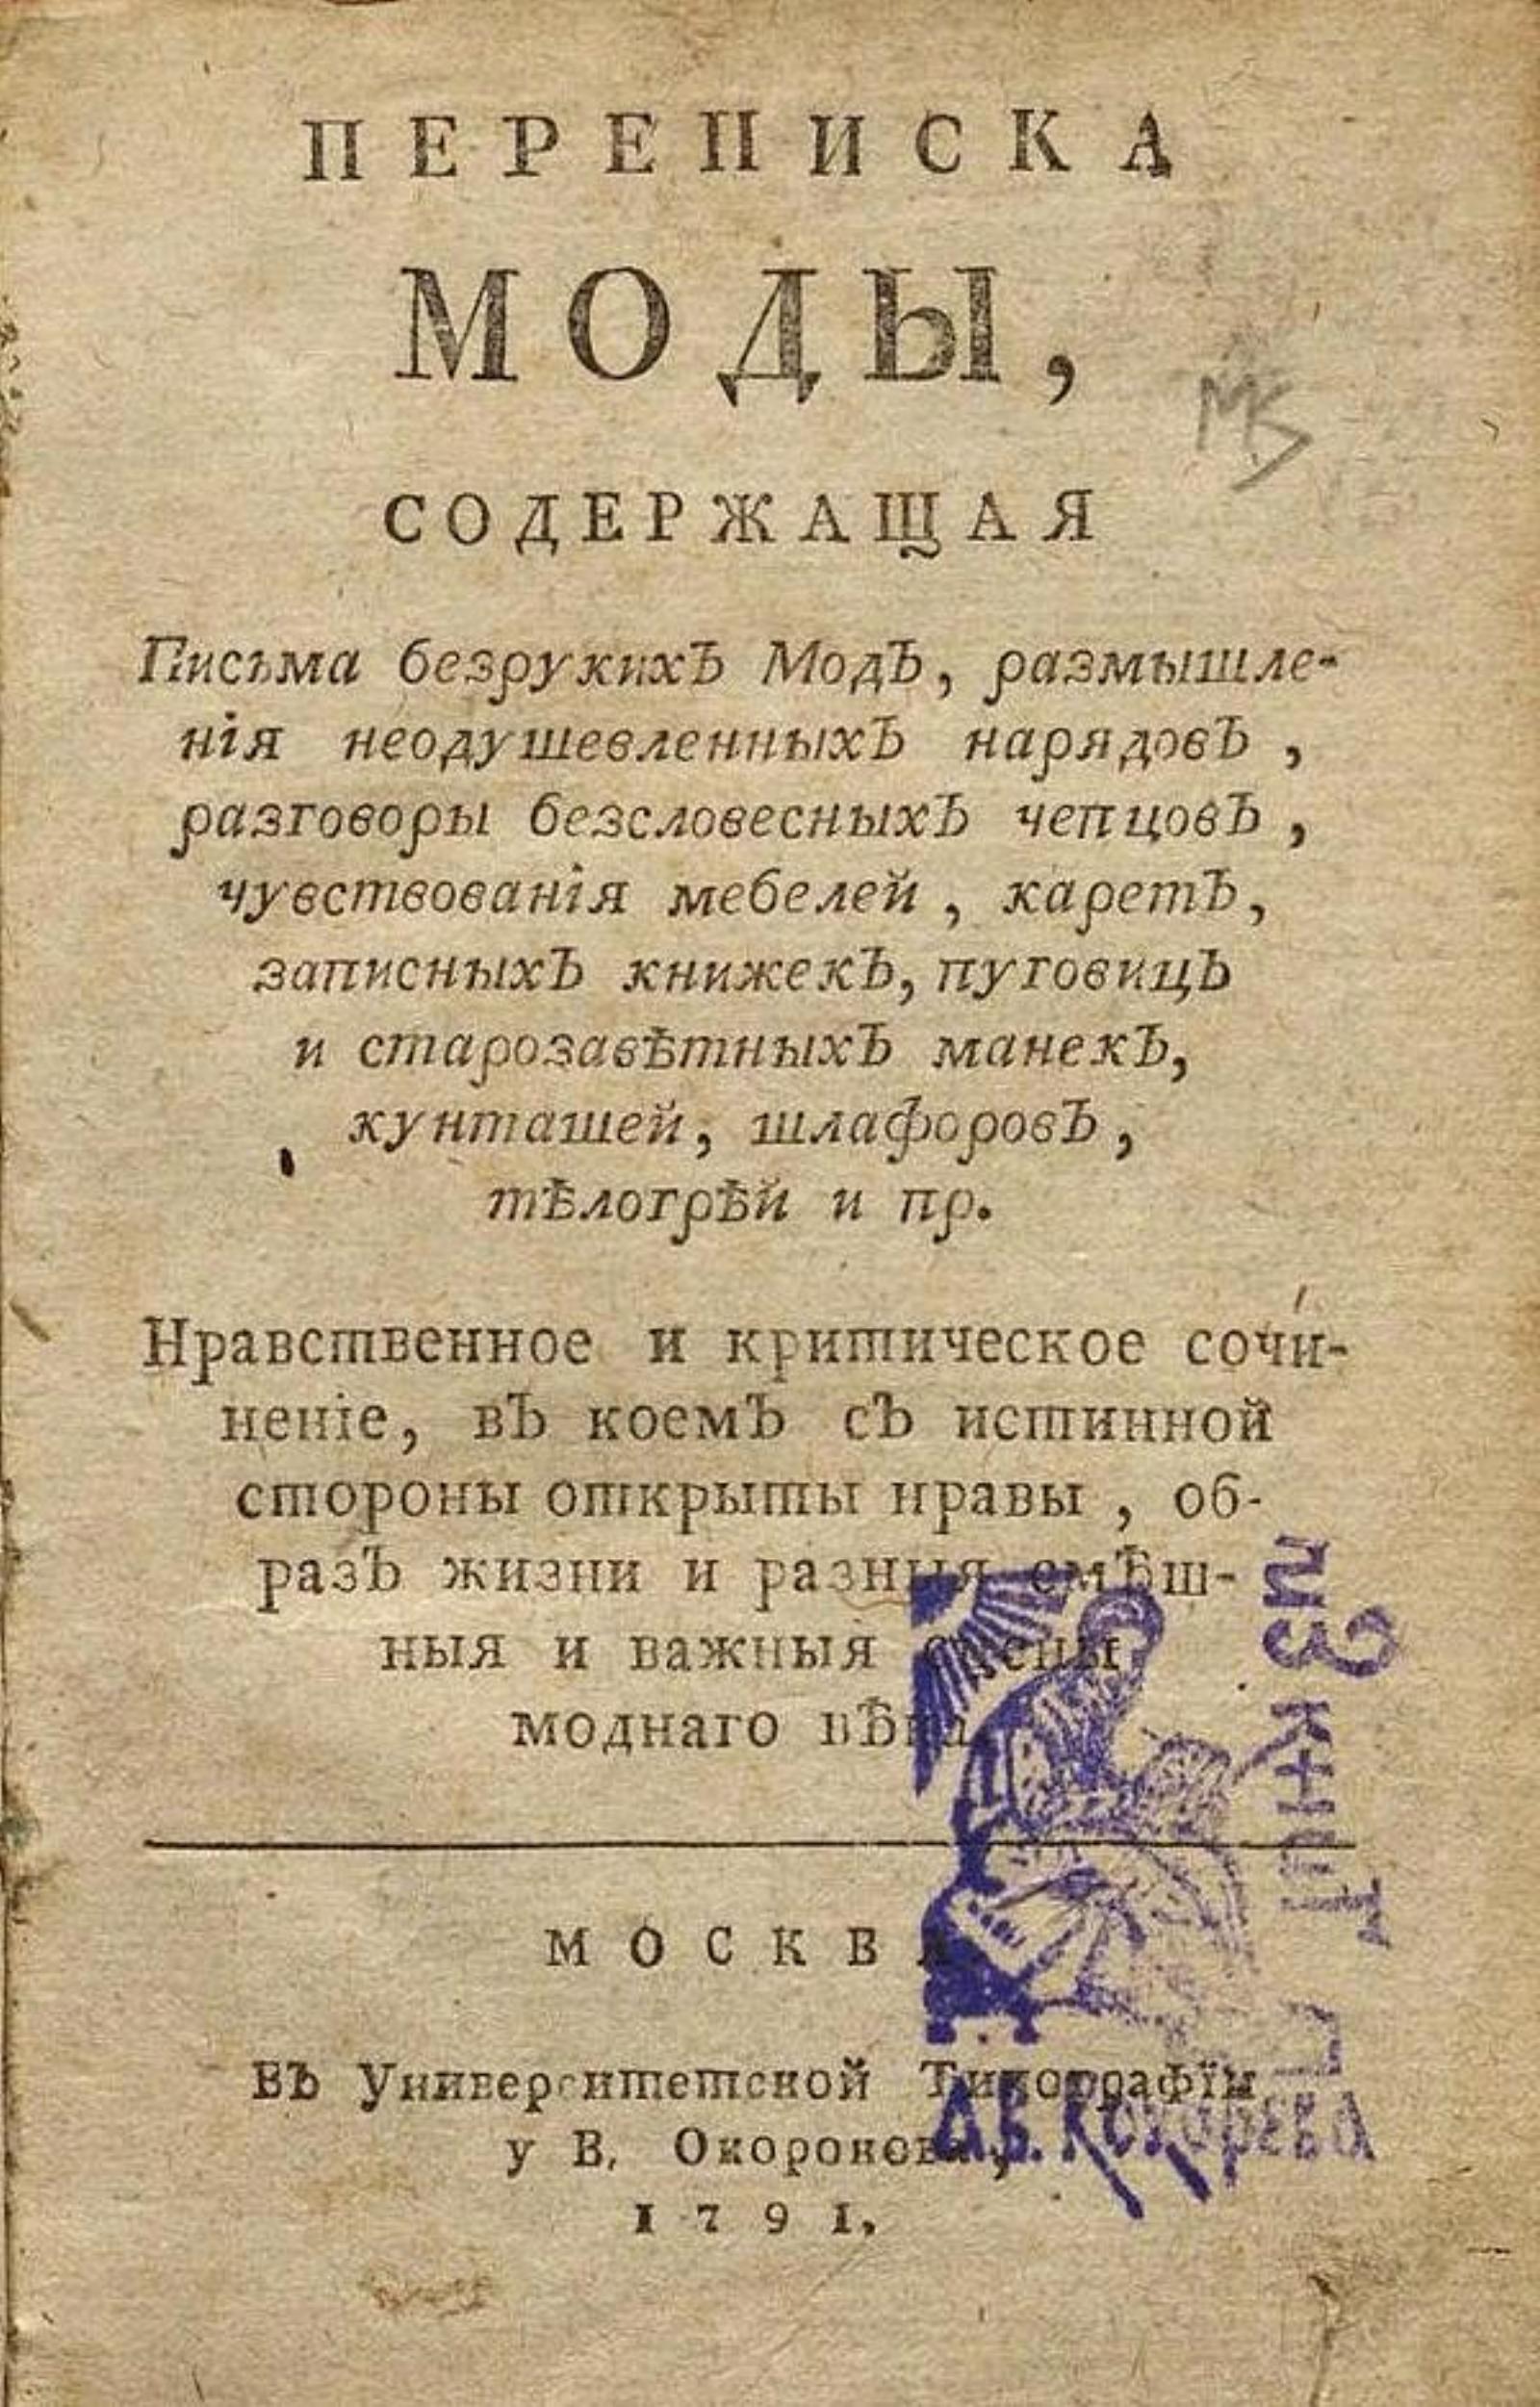 ПЕРЕПИСКА
МОДЫ,
СОДЕРЖАЩАЯ
Письма безрукихЪ МодЪ, размышле-
нія неодушевленныхЪ нарядовЪ,
разговоры безсловесныхЪ чепцовЪ,
чувствованія мебелей, каретЪ,
записныхЪ книжекЪ, пуговицЪ
и старозавѣтныхЪ манекЪ,
кунташей, шлафоровЪ,
тѣлогрѣй и пр.
Нравственное и критическое сочи-
неніе, вЪ коемЪ сЪ истинной
стороны открыты нравы, об-
разЪ жизни и разныя смѣш-
ныя и важныя сцены
моднаго вѣка.
МОСКВА
ВЪ Университетской Типографїи
у В. Окорокова,
1791.
из книг
А.В. Кокорева